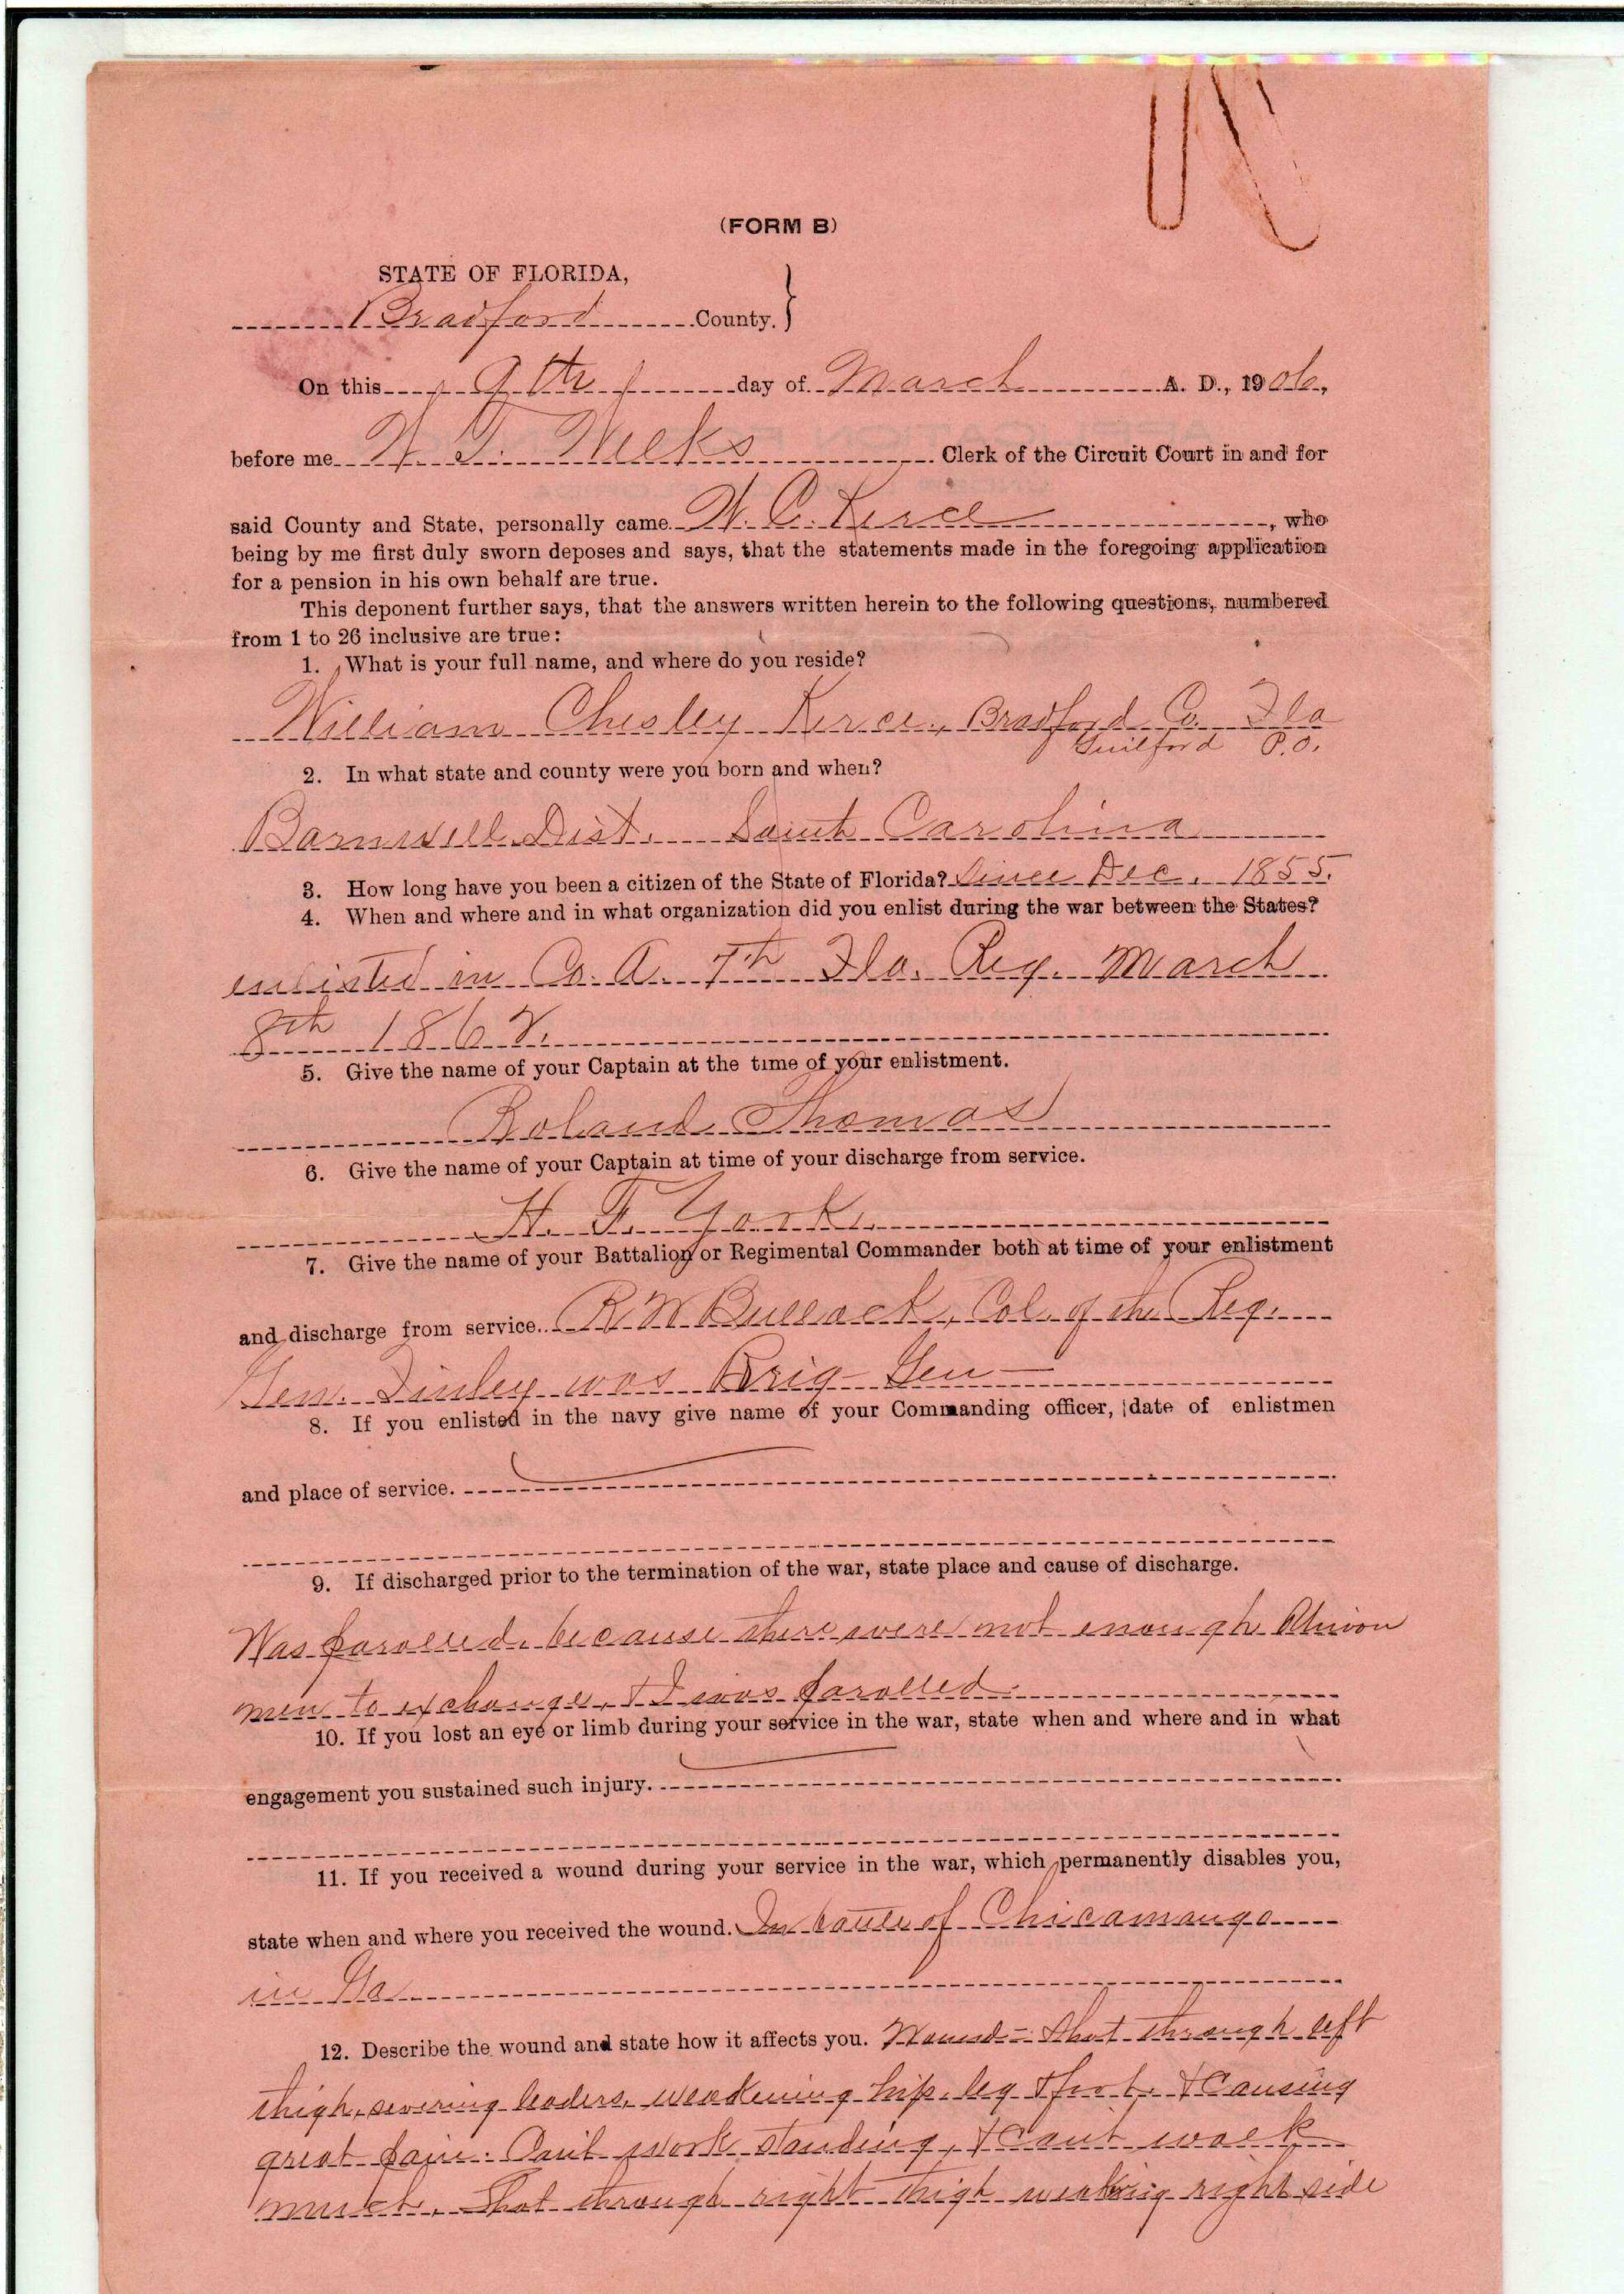 (FORM B)
STATE OF FLORIDA,
Bradford County. }
On this 9th day of March A. D., 1906,
before me W. T. Weeks Clerk of the Circuit Court in and for
said County and State, personally came W. C. Kerce, who
being by me first duly sworn deposes and says, that the statements made in the foregoing application
for a pension in his own behalf are true.
This deponent further says, that the answers written herein to the following questions, numbered
from 1 to 26 inclusive are true:
1. What is your full name, and where do you reside?
William Chesley Kerce, Bradford Co. Fla
Guilford P.O.
2. In what state and county were you born and when?
Barnwell Dist. South Carolina
3. How long have you been a citizen of the State of Florida? Since Dec. 1855.
4. When and where and in what organization did you enlist during the war between the States?
enlisted in Co. A. 7th Fla. Reg. March
8th 1862.
5. Give the name of your Captain at the time of your enlistment.
Roland Thomas
6. Give the name of your Captain at time of your discharge from service.
H. F. York.
7. Give the name of your Battalion or Regimental Commander both at time of your enlistment
and discharge from service. R. W Bullock, Col. of the Reg.
Gen. Finley was Brig-Gen—
8. If you enlisted in the navy give name of your Commanding officer, date of enlistmen
and place of service.
9. If discharged prior to the termination of the war, state place and cause of discharge.
Was parolled, because there were not enough
men to exchange, & I was parolled.
10. If you lost an eye or limb during your service in the war, state when and where and in what
engagement you sustained such injury.
11. If you received a wound during your service in the war, which permanently disables you,
state when and where you received the wound. In battle of Chicamauga
in Ga
12. Describe the wound and state how it affects you. Wound = Shot through left
thigh, severing leaders, weakening hip, leg & foot, & Causing
great pain. Can't work standing, & Can't walk
much. Shot through right thigh right side